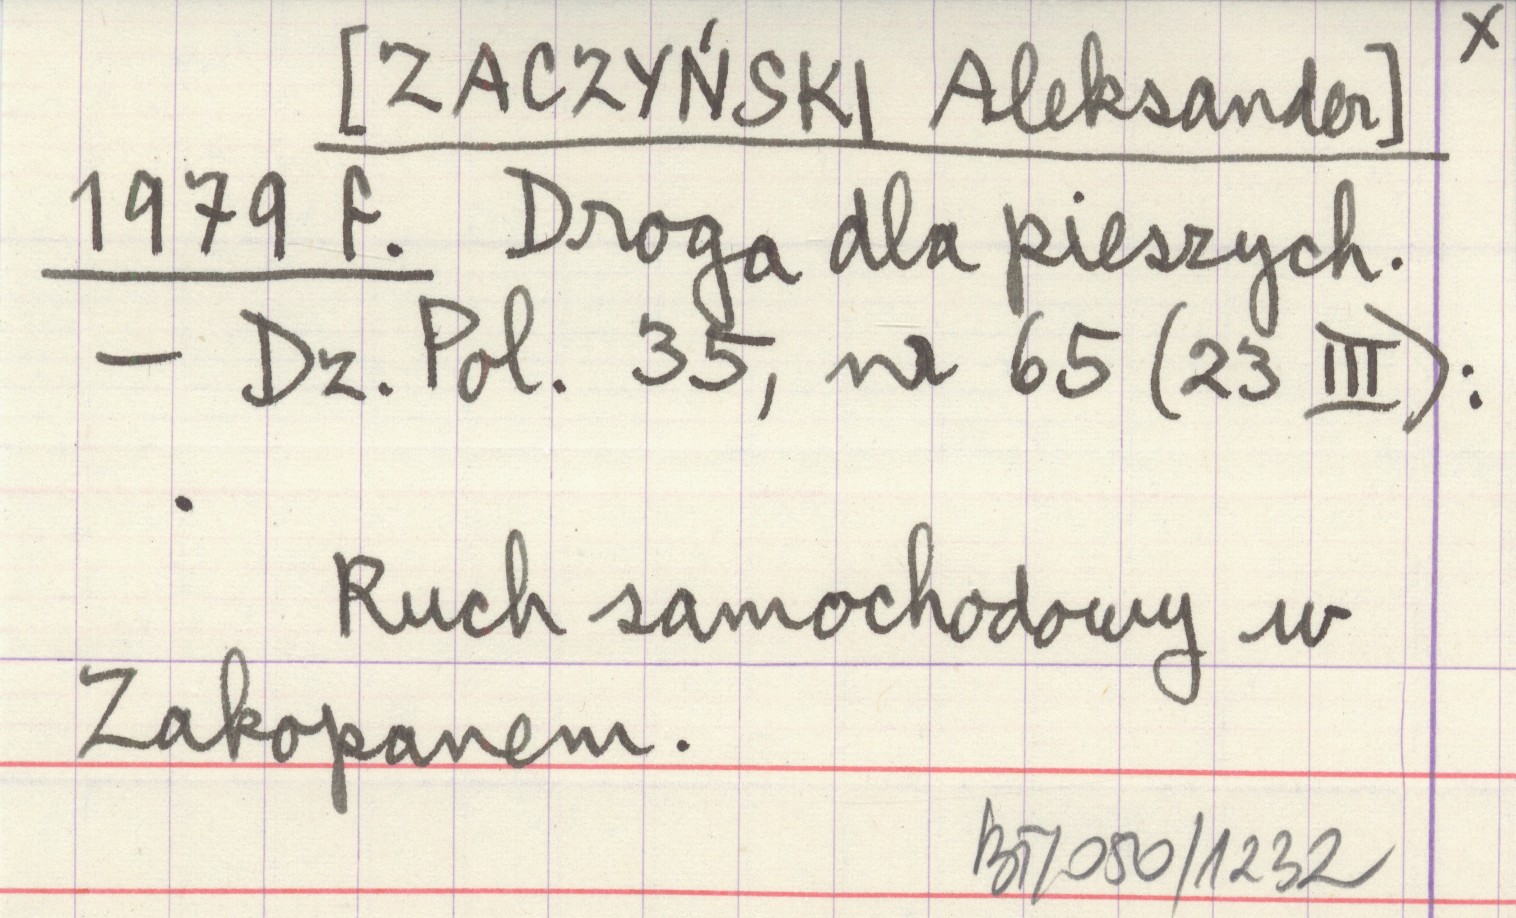 x
[ZACZYŃSKI Aleksander]
1979 f. Droga dla pieszych.
– Dz. Pol. 35, nr 65 (23 III):
.
Ruch samochodowy w
Zakopanem.
BT/050/1232